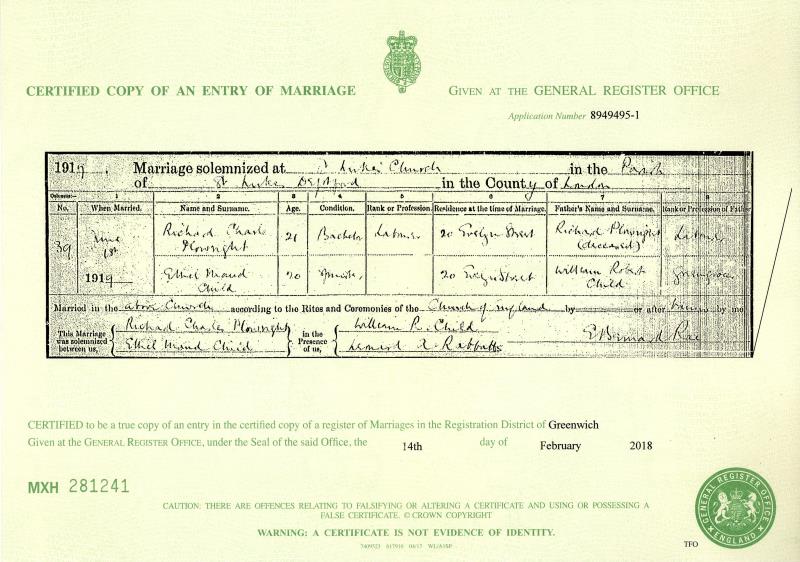 CERTIFIED COPY OF AN ENTRY OF MARRIAGE
GIVEN AT THE GENERAL REGISTER OFFICE
Application Number 8949495-1
1919. Marriage solemnized at St Luke's Church in the Parish
of St Lukes Deptford in the County of London
Columns:— 1 2 3 4 5 6 7 8
No. When Married. Name and Surname. Age. Condition. Rank or Profession. Residence at the time of Marriage. Father's Name and Surname. Rank or Profession of Father
39 June 1st 1919
Richard Charles Plowright 21 Bachelor 20 Evelyn Street Richard Plowright (deceased)
Ethel Maud Child 20 Spinster 20 Evelyn Street William Robert Child Greengrocer
Married in the above Church according to the Rites and Ceremonies of the Church of England by or after Banns by me
This Marriage was solemnized between us, Richard Charles Plowright
Ethel Maud Child
in the Presence of us, William R. Child
Leonard Rabbatts
E Bernard Rae
CERTIFIED to be a true copy of an entry in the certified copy of a register of Marriages in the Registration District of Greenwich
Given at the GENERAL REGISTER OFFICE, under the Seal of the said Office, the 14th day of February 2018
MXH 281241
CAUTION: THERE ARE OFFENCES RELATING TO FALSIFYING OR ALTERING A CERTIFICATE AND USING OR POSSESSING A
FALSE CERTIFICATE. © CROWN COPYRIGHT
WARNING: A CERTIFICATE IS NOT EVIDENCE OF IDENTITY.
GENERAL REGISTER OFFICE
ENGLAND
TFO